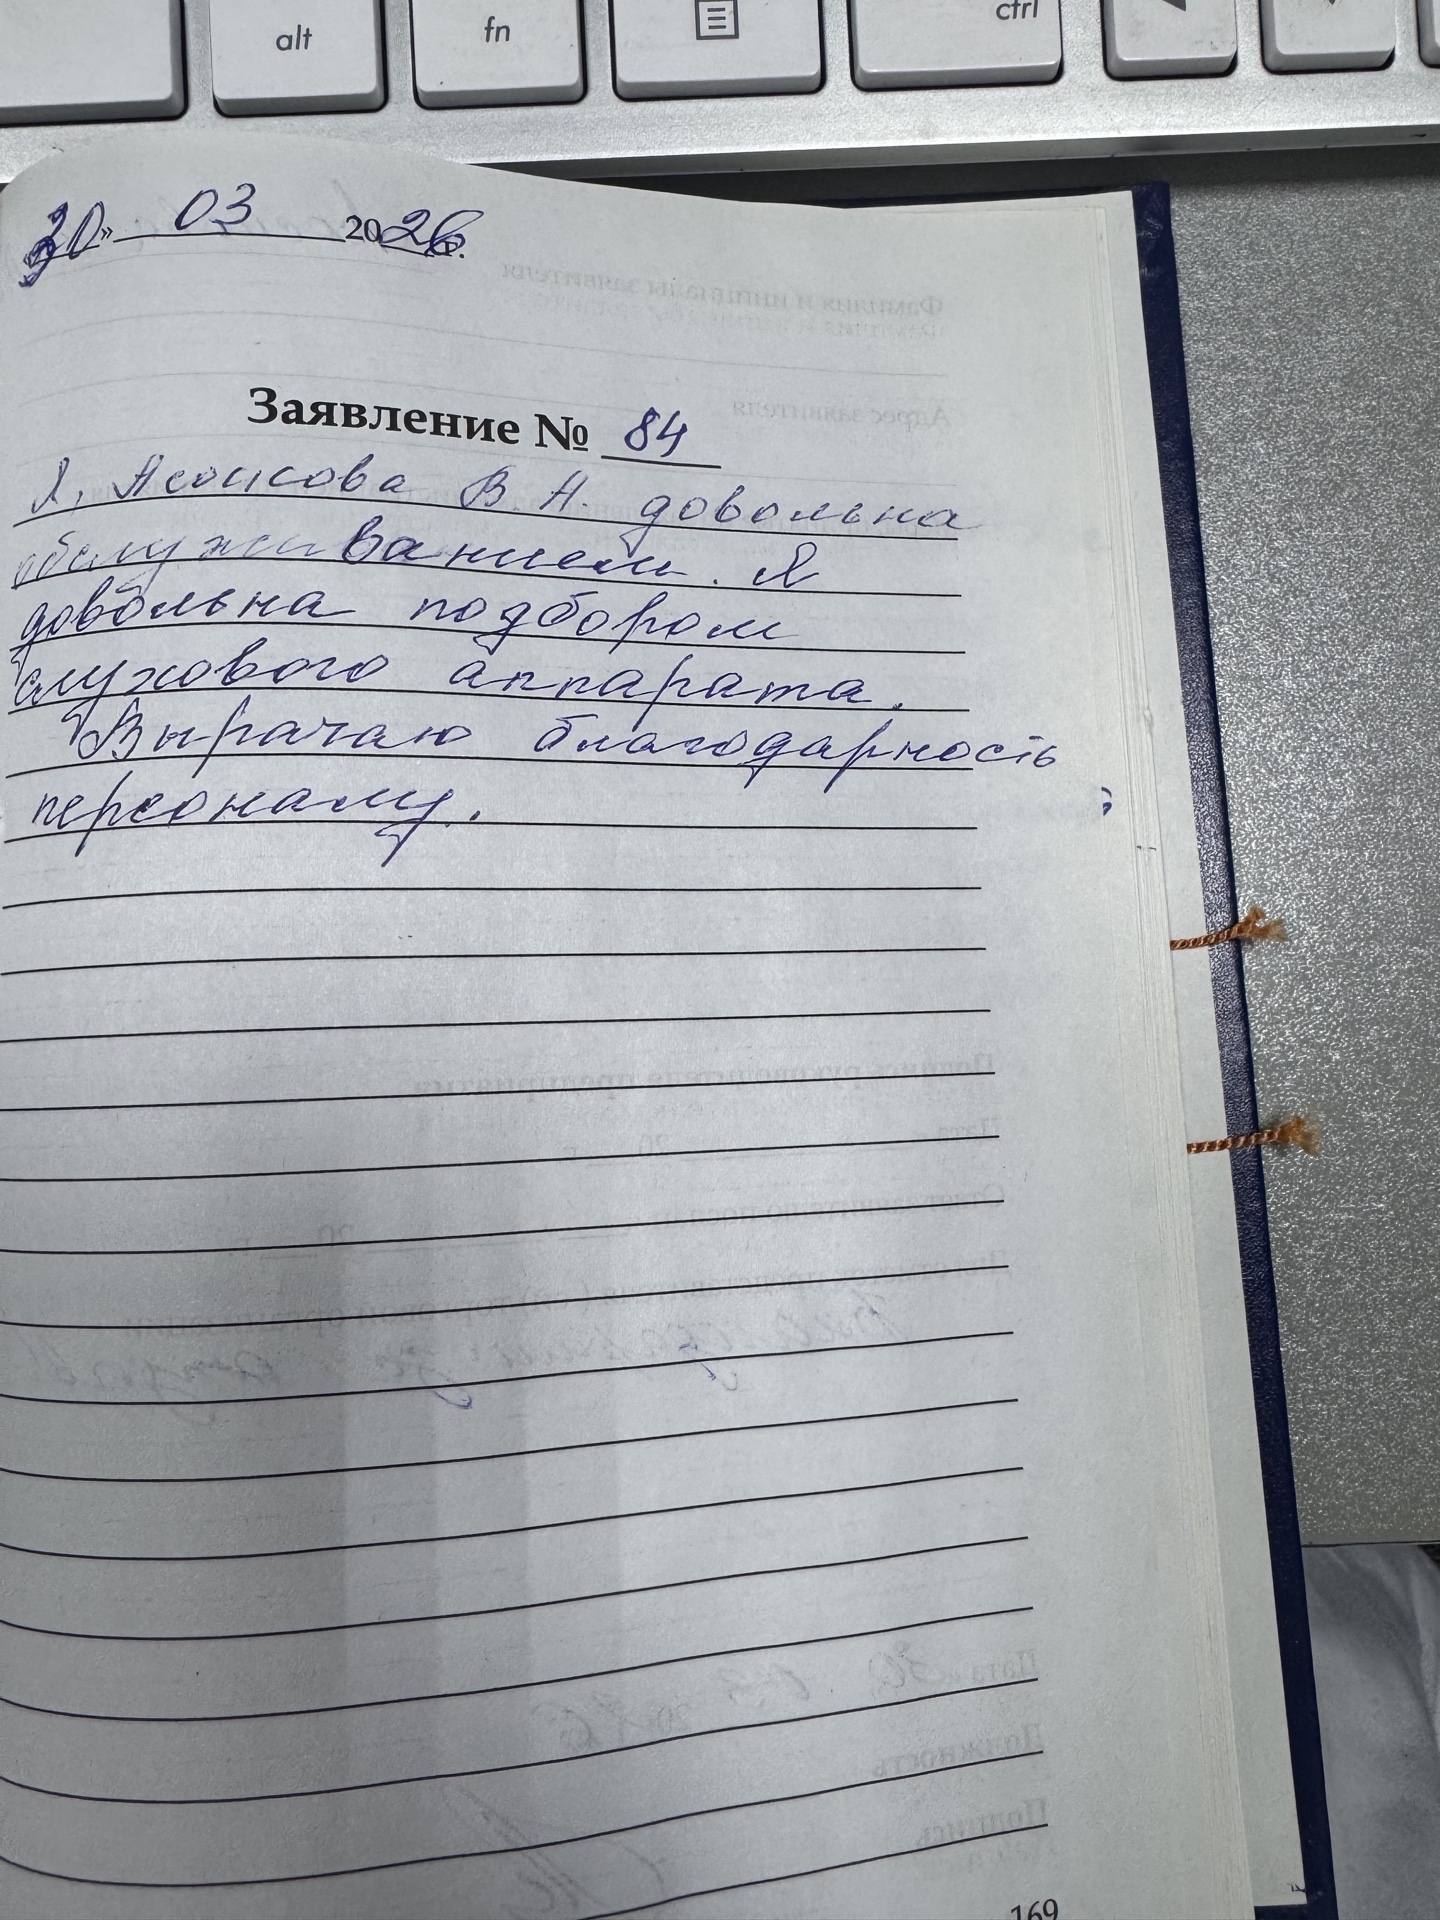 alt fn ctrl
30» 03 2026 г.
Заявление № 84
Я, В. А. довольна
обслуживанием. Я
довольна подбором
слухового аппарата.
Выражаю благодарность
персоналу.
169